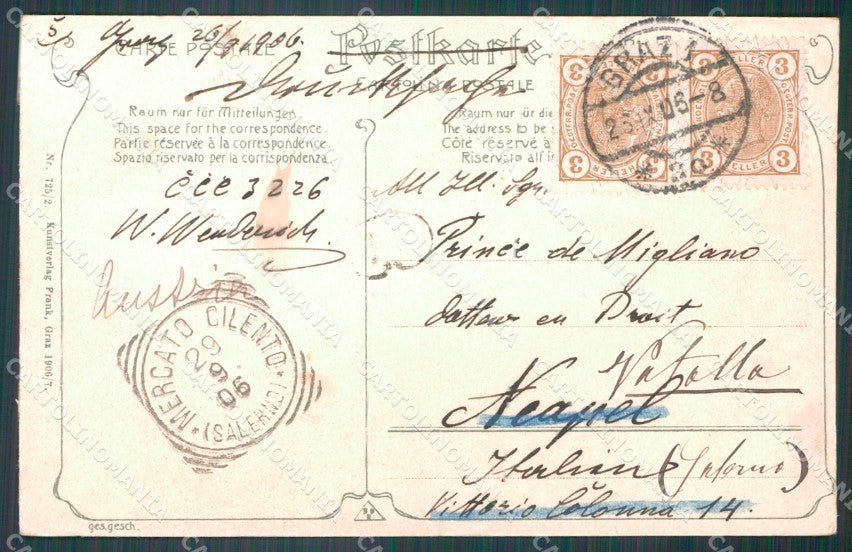 Graz 26/9 1906.
CARTE POSTALE
Postkarte
CARTOLINA POSTALE
Drucksache
Raum nur für Mitteilungen
This space for the correspondence
Partie réservée à la correspondence.
Spazio riservato per la corrispondenza.
Raum nur für die
The address to be
Côté réservé à
Riservato all'in
3
3
3
3
HELLER
GRAZ 1
26 IX 06-8
* 3a *
ččč 3226
W. Wenderich.
Austria
MERCATO CILENTO
29
9
06
(SALERNO)
All Ill. Sgr.
Prince de Migliano
dotteur en Droit
Vatolla
Neapel
Italien (Salerno)
Vittorio Colonna 14.
Nr. 725/2. Kunstverlag Frank, Graz 1906/7.
ges.gesch.
CARTOLINOMANIA